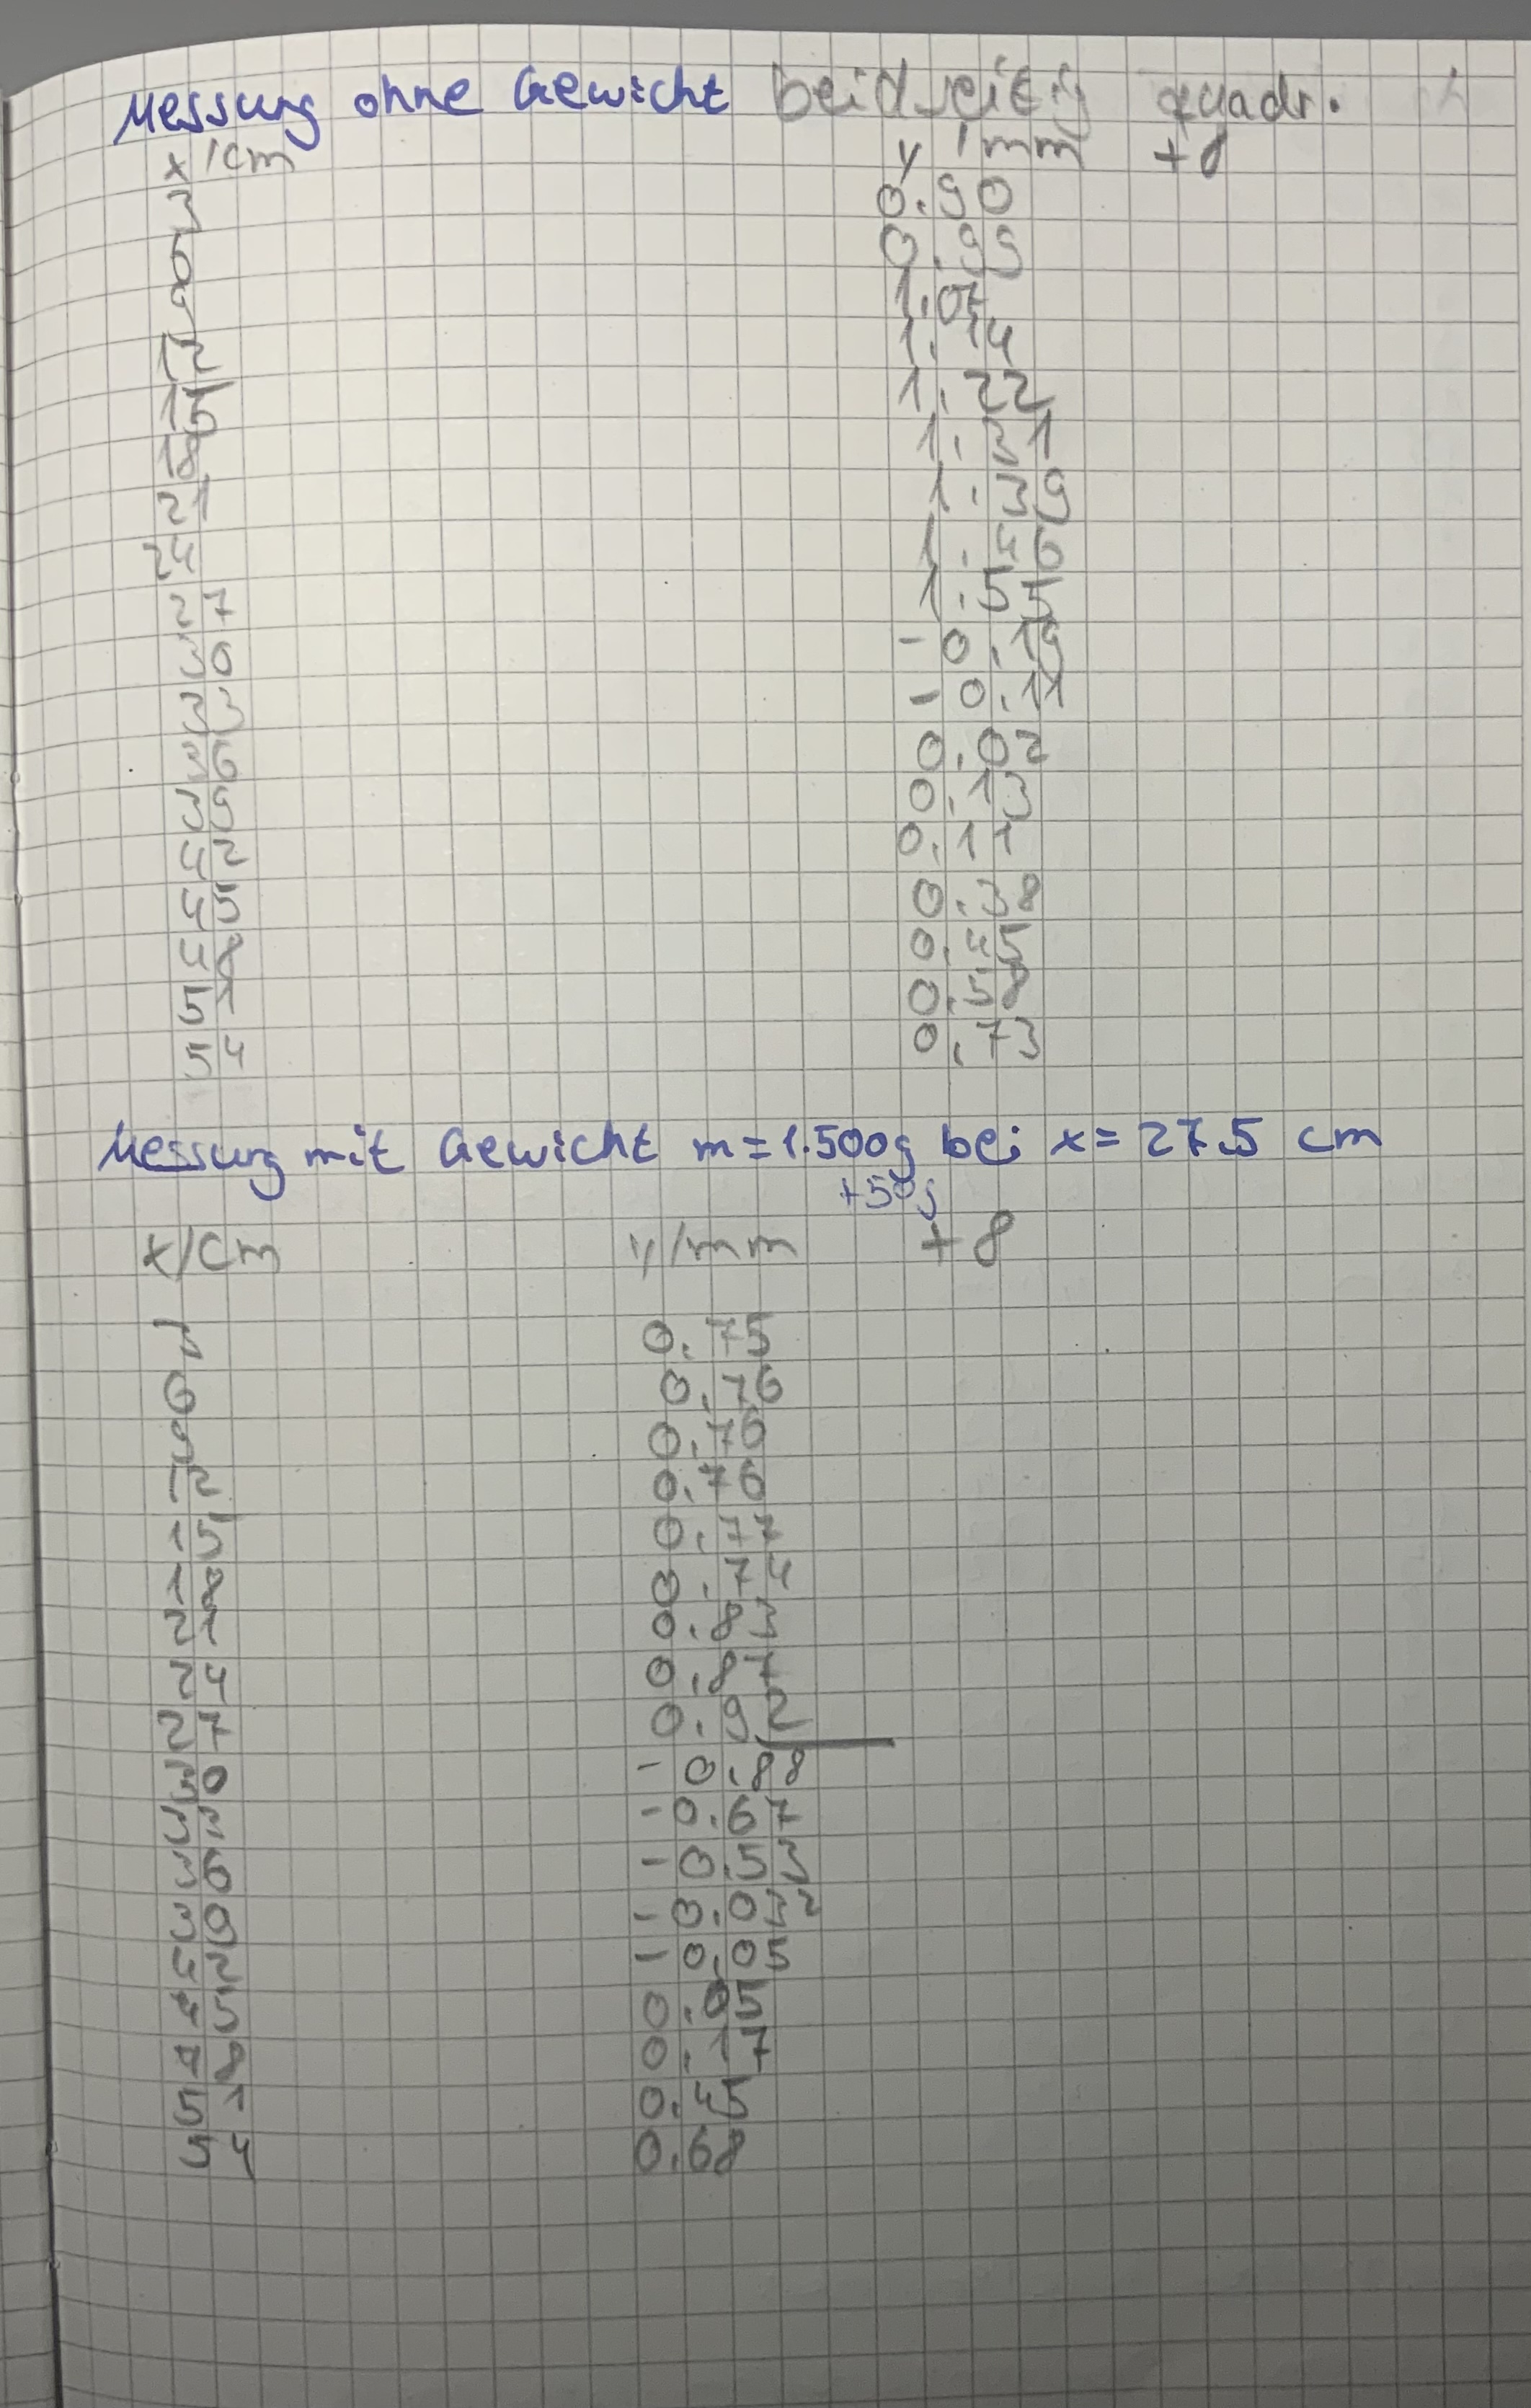 Messung ohne Gewicht beidseitig quadr.
x/cm y/mm +8
3 0.90
6 0.99
9 1.07
12 1.14
15 1.22
18 1.31
21 1.39
24 1.46
27 1.55
30 -0.19
33 -0.11
36 0.02
39 0.13
42 0.11
45 0.38
48 0.45
51 0.58
54 0.73
Messung mit Gewicht m=1.500g bei x=27.5 cm
+50g
x/cm y/mm +8
3 0.75
6 0.76
9 0.76
12 0.76
15 0.77
18 0.74
21 0.83
24 0.87
27 0.92
30 -0.88
33 -0.67
36 -0.53
39 -0.032
42 -0.05
45 0.05
48 0.17
51 0.45
54 0.68